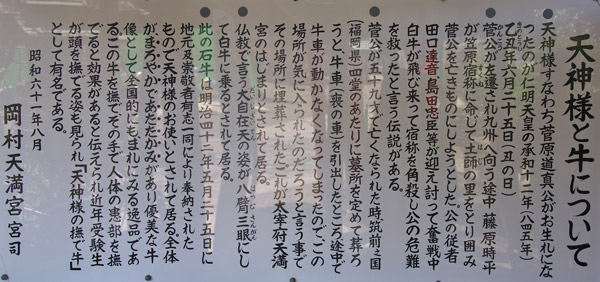 天神様と牛について
天神様すなわち菅原道真公がお生れにな
たのが仁明天皇の承和十二年(八四五年)
乙丑年六月二十五日(丑の日)
きのとうし
菅公が左遷され九州へ向う途中 藤原時平
が笠原宿祢に命じて土師の里をとり囲み
菅公を亡きものにしようとした。公の従者
田口達音、島田忠臣等が迎え討って奮戦中
白牛が飛び来って宿祢を角殺し公の危難
を救ったと言う伝説がある。
菅公が五十九才で亡くなられた時筑前之国
(福岡県)四堂のあたりに墓所を定めて葬ろ
うと、牛車(喪の車)を引出したところ途中で
牛車が動かなくなってしまったのでこの
場所が気に入られたのだろうと言う事で
その場所に埋葬されたこれが太宰府天満
宮のはじまりとされて居る。
仏教で言う大自在天の姿が八臂三眼にし
さんがん
て白牛に乗るとされて居る。
此の石牛は明治四十二年五月二十五日に
地元及崇敬者有志一同により奉納された
もので天神様のお使いとされて居る。全体
がまろやかであたたかみがあり優美な牛
像として全国的にもまれにみる逸品であ
る。この牛を撫でその手で人体の患部を撫
でると効果があると伝えられ近年受験生
が頭を撫でる姿も見られ「天神様の撫で牛」
として有名である。
昭和六十一年八月
岡村天満宮 宮司